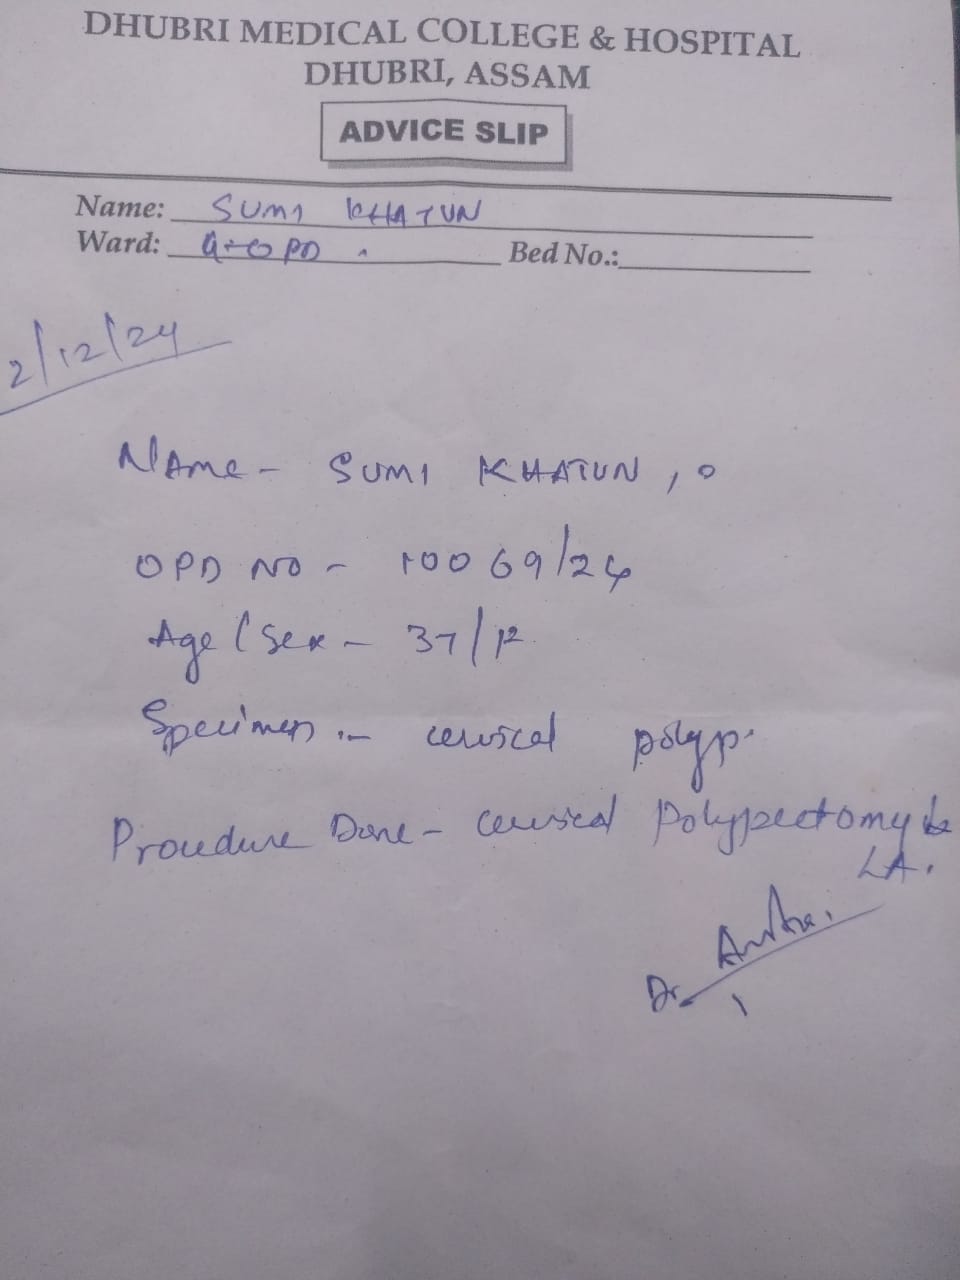 DHUBRI MEDICAL COLLEGE & HOSPITAL
DHUBRI, ASSAM
ADVICE SLIP
Name: SUMI KHATUN
Ward: G-OPD Bed No.:
2/12/24
Name - SUMI KHATUN,
OPD NO - 10069/24
Age/Sex - 37/F
Specimen :- cervical polyp.
Procedure Done - cervical Polypectomy
LA.
Dr.